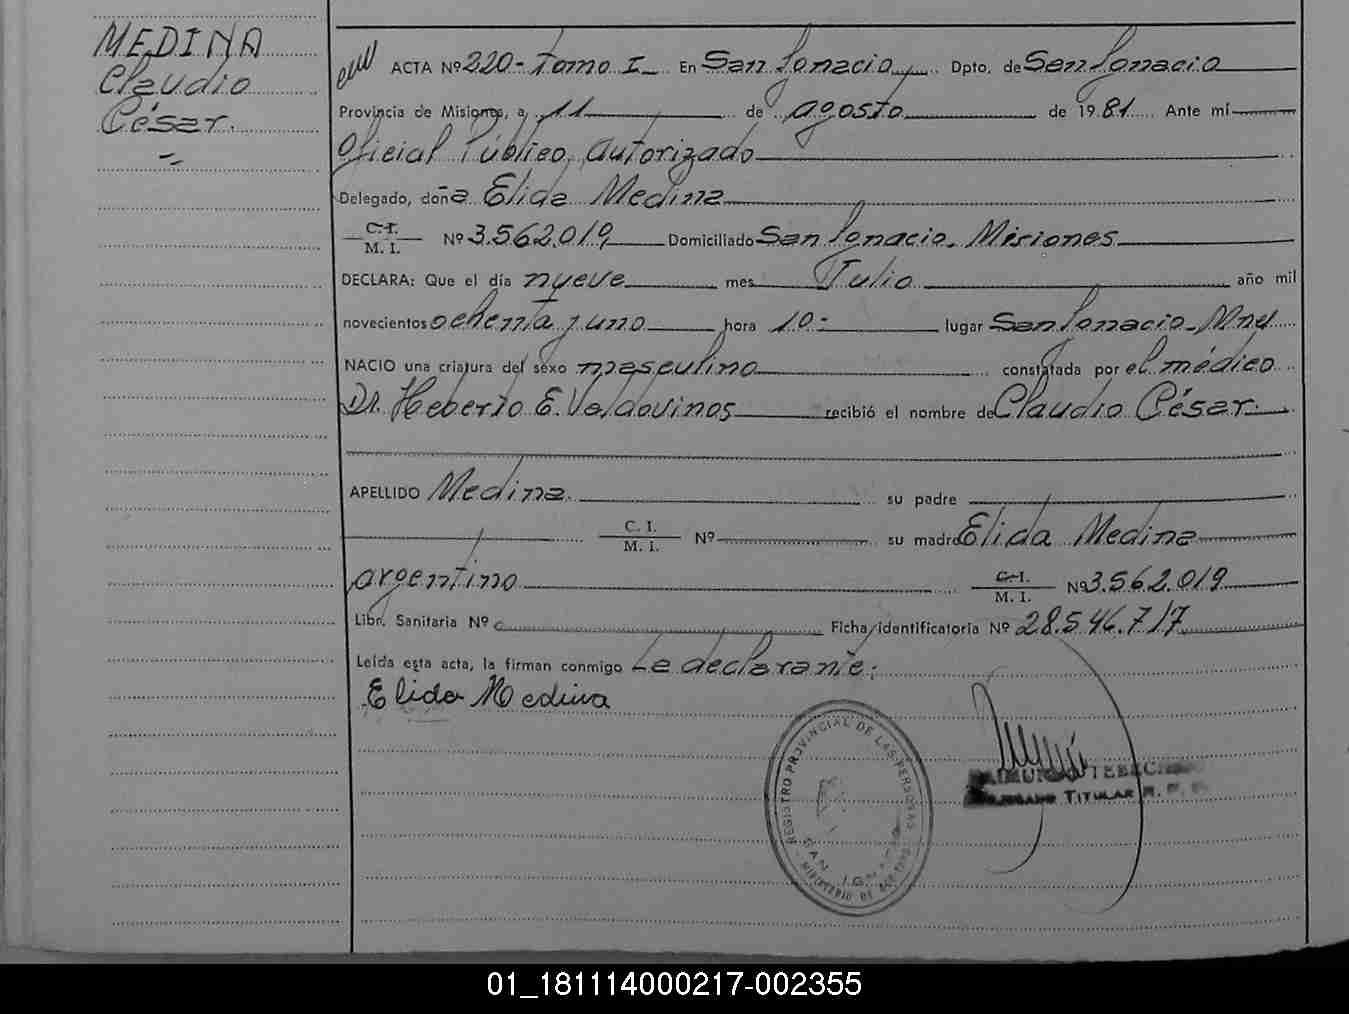 MEDINA
Claudio
César.
ACTA Nº 220- Tomo I En San Ignacio, Dpto. de San Ignacio
Provincia de Misiones, a 11 de agosto de 1981. Ante mí
Oficial Público Autorizado
Delegado, doña Elida Medina
C. I.
M. I. Nº 3.562.019 Domiciliado San Ignacio. Misiones
DECLARA: Que el día nueve mes Julio año mil
novecientos ochenta y uno hora 10- lugar San Ignacio- Mnes
NACIO una criatura del sexo masculino constatada por el médico
Dr. Heberto E. Valdovinos recibió el nombre de Claudio César.
APELLIDO Medina su padre
C. I.
M. I. Nº su madre Elida Medina
argentino C. I.
M. I. Nº 3.562.019
Libr. Sanitaria Nº Ficha identificatoria Nº 28.546.717
Leída esta acta, la firman conmigo La declarante;
Elida Medina
REGISTRO PROVINCIAL DE LAS PERSONAS
SAN IGNACIO
MINISTERIO DE
TITULAR
01_181114000217-002355